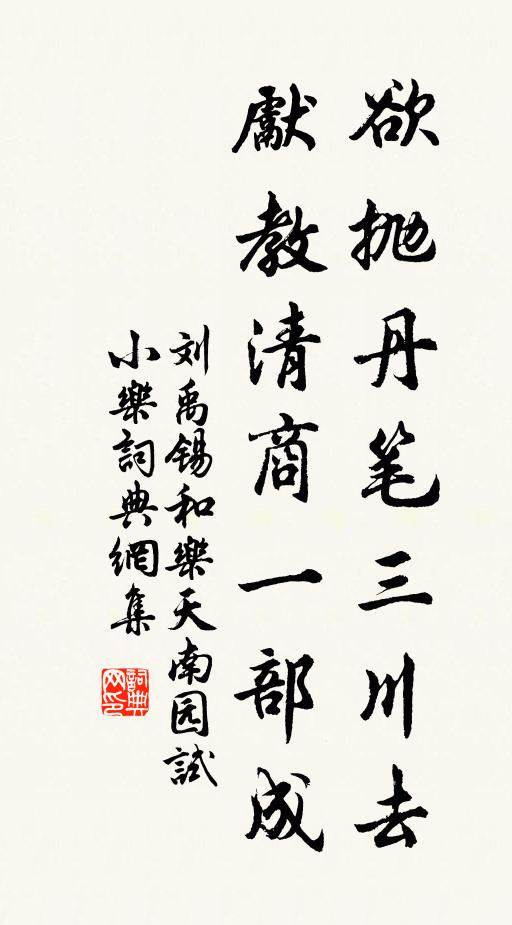 欲抛丹笔三川去
獻教清商一部成
刘禹锡和樂天南园試
小樂詞典網集
詞典网印